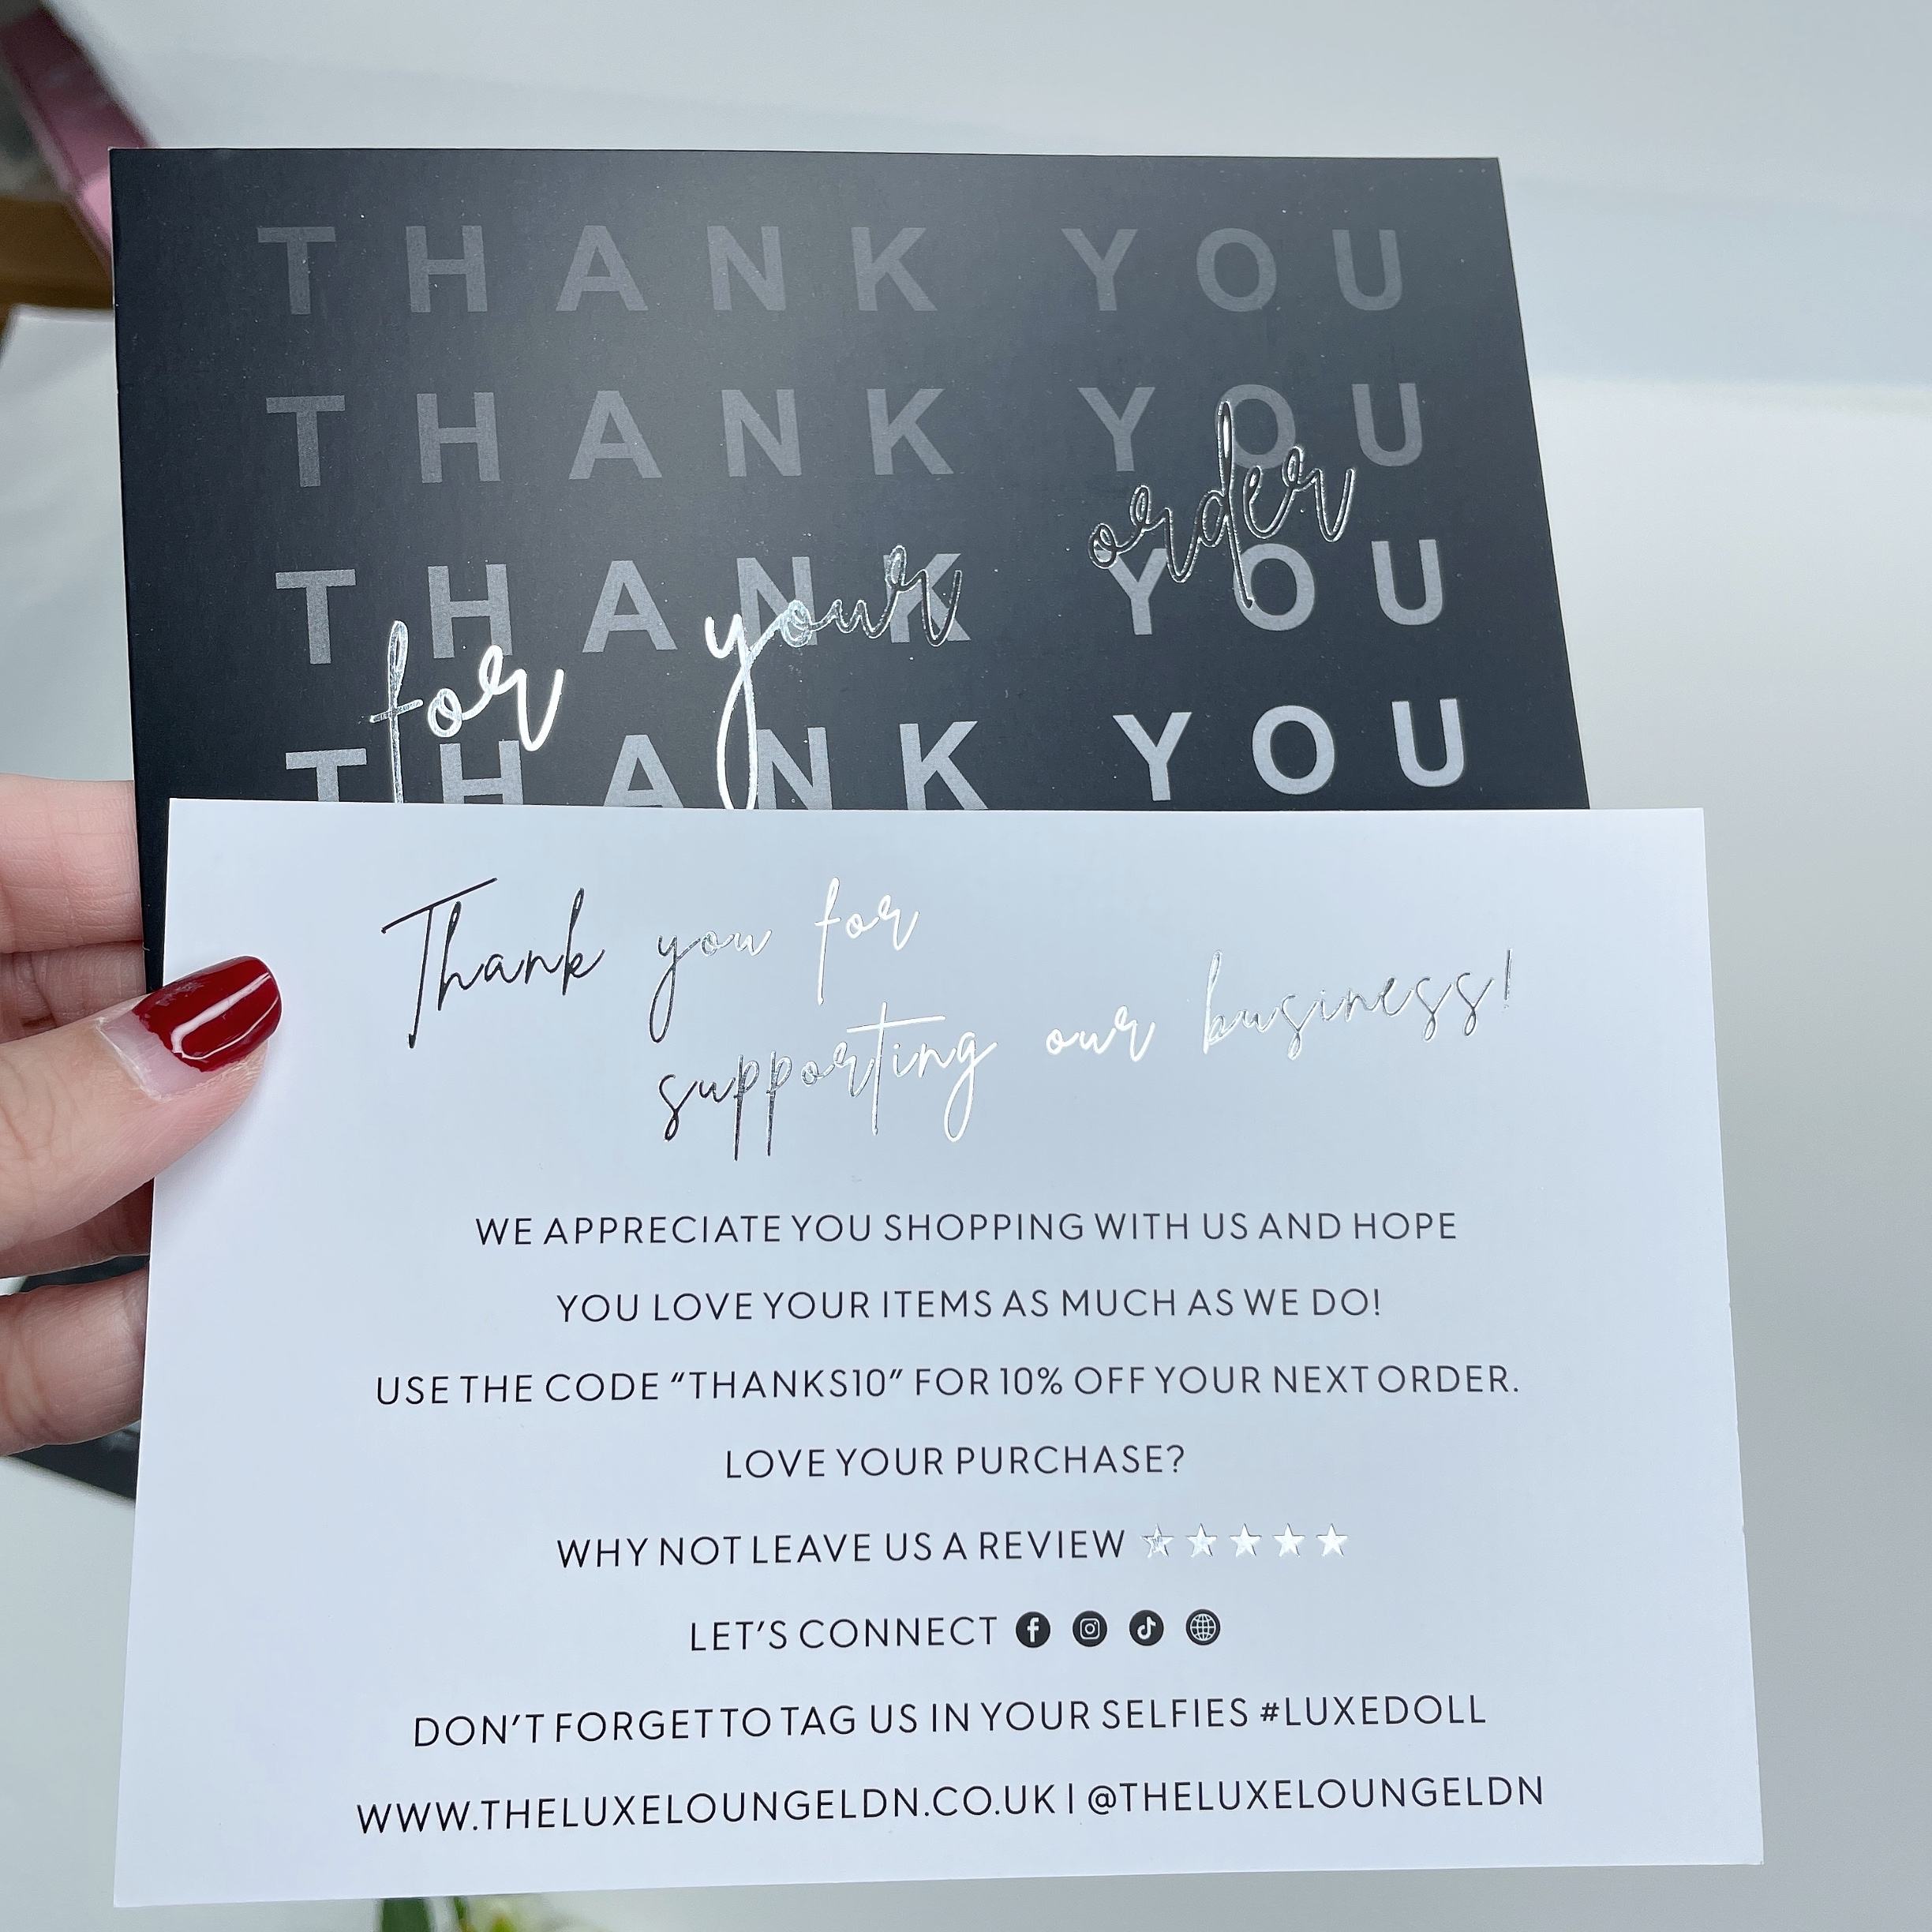 THANK YOU
THANK YOU
THANK YOU
THANK YOU
for your order
Thank you for
supporting our business!
WE APPRECIATE YOU SHOPPING WITH US AND HOPE
YOU LOVE YOUR ITEMS AS MUCH AS WE DO!
USE THE CODE “THANKS10” FOR 10% OFF YOUR NEXT ORDER.
LOVE YOUR PURCHASE?
WHY NOT LEAVE US A REVIEW ★★★★★
LET’S CONNECT
DON’T FORGET TO TAG US IN YOUR SELFIES #LUXEDOLL
WWW.THELUXELOUNGELDN.CO.UK | @THELUXELOUNGELDN